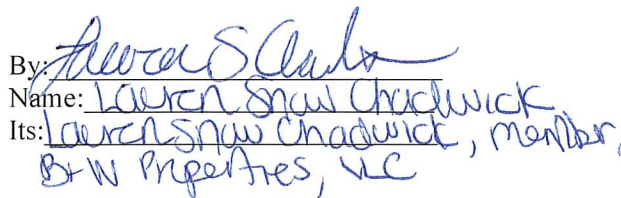 By: Lauren S Chad
Name: Lauren Snow Chadwick
Its: Lauren Snow Chadwick, member,
B+W Properties, LLC